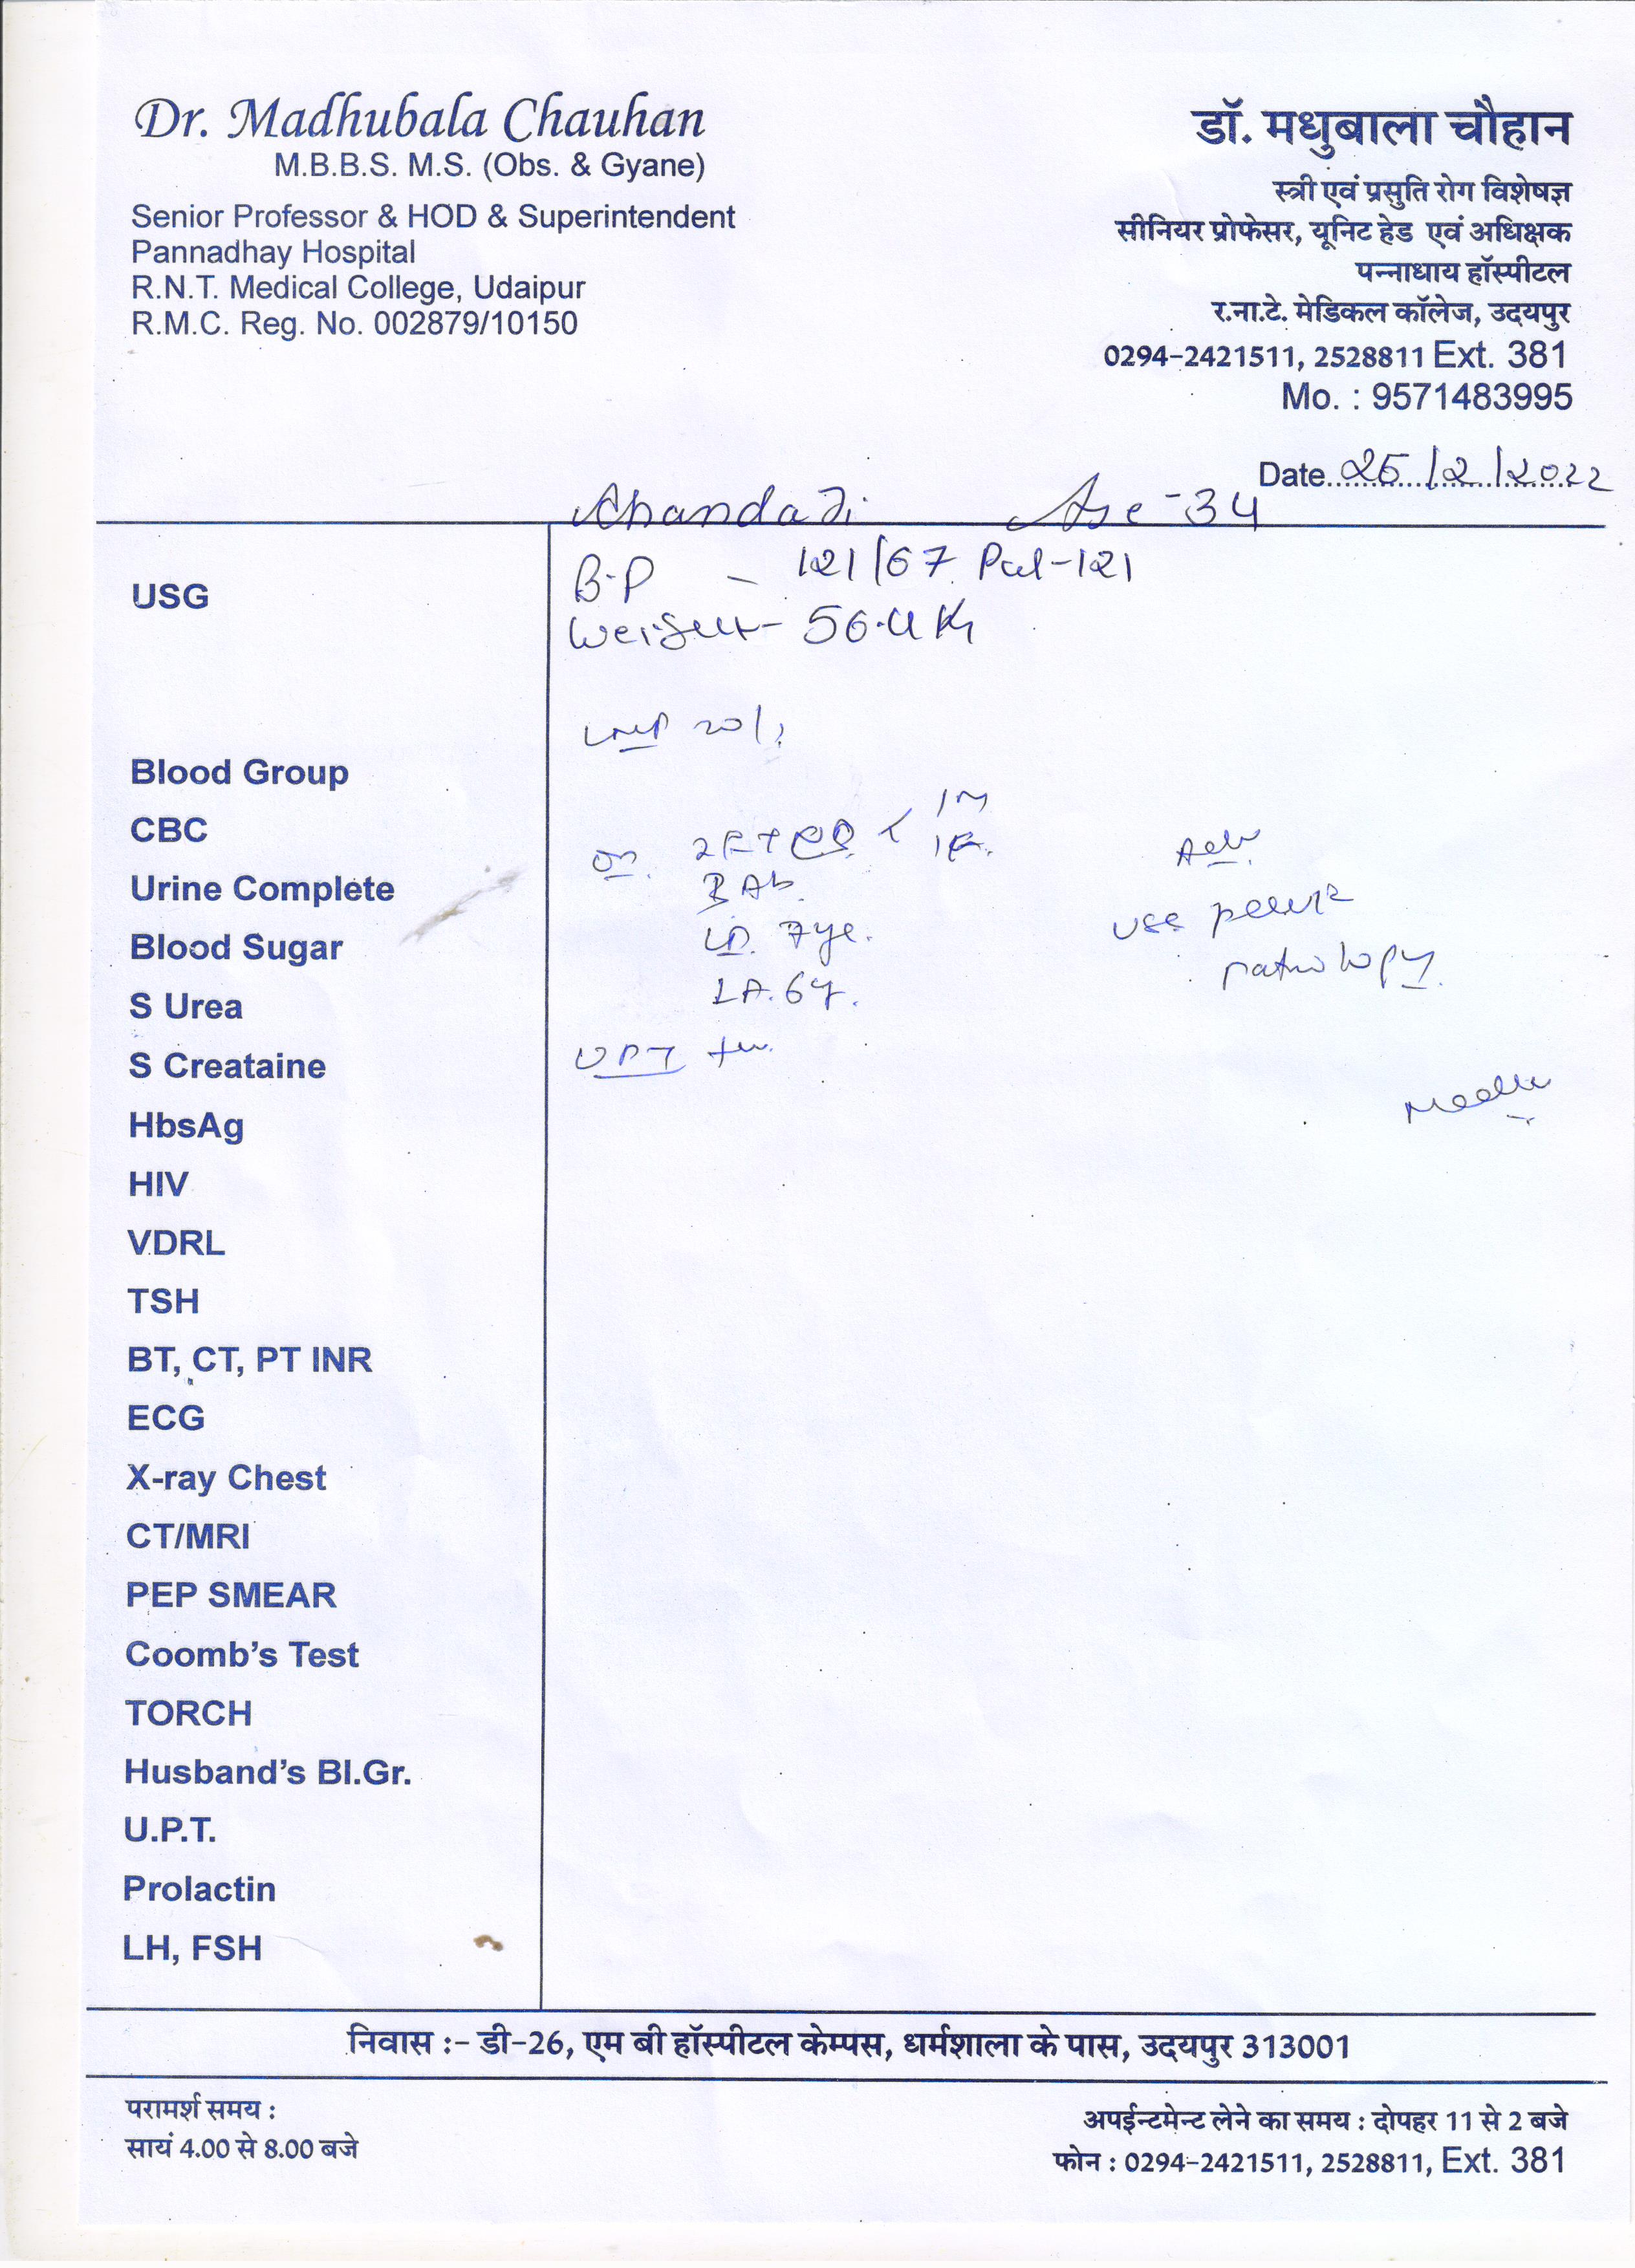 Dr. Madhubala Chauhan
M.B.B.S. M.S. (Obs. & Gyane)
Senior Professor & HOD & Superintendent
Pannadhay Hospital
R.N.T. Medical College, Udaipur
R.M.C. Reg. No. 002879/10150
डॉ. मधुबाला चौहान
स्त्री एवं प्रसुति रोग विशेषज्ञ
सीनियर प्रोफेसर, यूनिट हेड एवं अधिक्षक
पन्नाधाय हॉस्पीटल
र.ना.टे. मेडिकल कॉलेज, उदयपुर
0294-2421511, 2528811 Ext. 381
Mo. : 9571483995
Date 25/2/2022
Age - 34
B.P - 121/67 Pul-121
Weight - 56.4 Kg
LMP 20/1
2FTND < 1M
1F
3 Ab.
LD. 7ye.
LA. 6y.
UPT +ve
Adv
USG pelvis
pathology
USG
Blood Group
CBC
Urine Complete
Blood Sugar
S Urea
S Creataine
HbsAg
HIV
VDRL
TSH
BT, CT, PT INR
ECG
X-ray Chest
CT/MRI
PEP SMEAR
Coomb's Test
TORCH
Husband's Bl.Gr.
U.P.T.
Prolactin
LH, FSH
निवास :- डी-26, एम बी हॉस्पीटल केम्पस, धर्मशाला के पास, उदयपुर 313001
परामर्श समय :
सायं 4.00 से 8.00 बजे
अपईन्टमेन्ट लेने का समय : दोपहर 11 से 2 बजे
फोन : 0294-2421511, 2528811, Ext. 381